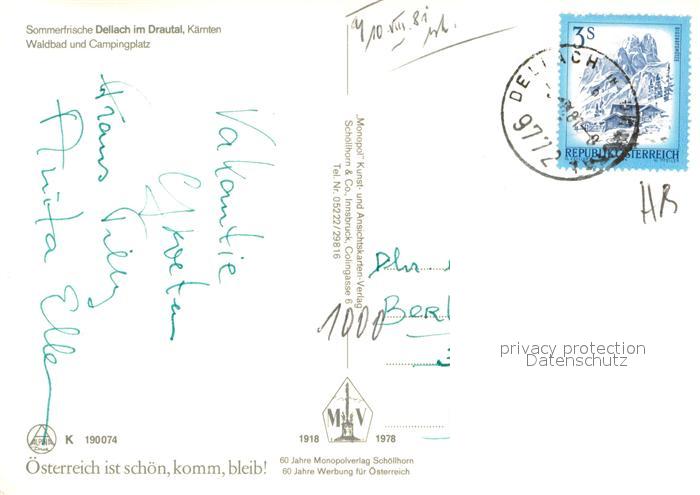 Sommerfrische Dellach im Drautal, Kärnten
Waldbad und Campingplatz
10.VIII.81
3S
REPUBLIK ÖSTERREICH
DELLACH
9772
HB
Vakantie
Groeten
Frans Tilly
Anita Ellen
„Monopol" Kunst- und Ansichtskarten-Verlag
Schöllhorn & Co., Innsbruck, Colingasse 6
Tel. Nr. 05222/29816
1000
privacy protection
Datenschutz
ALPINA
Druck
K 190074
M V
1918 1978
60 Jahre Monopolverlag Schöllhorn
60 Jahre Werbung für Österreich
Österreich ist schön, komm, bleib!